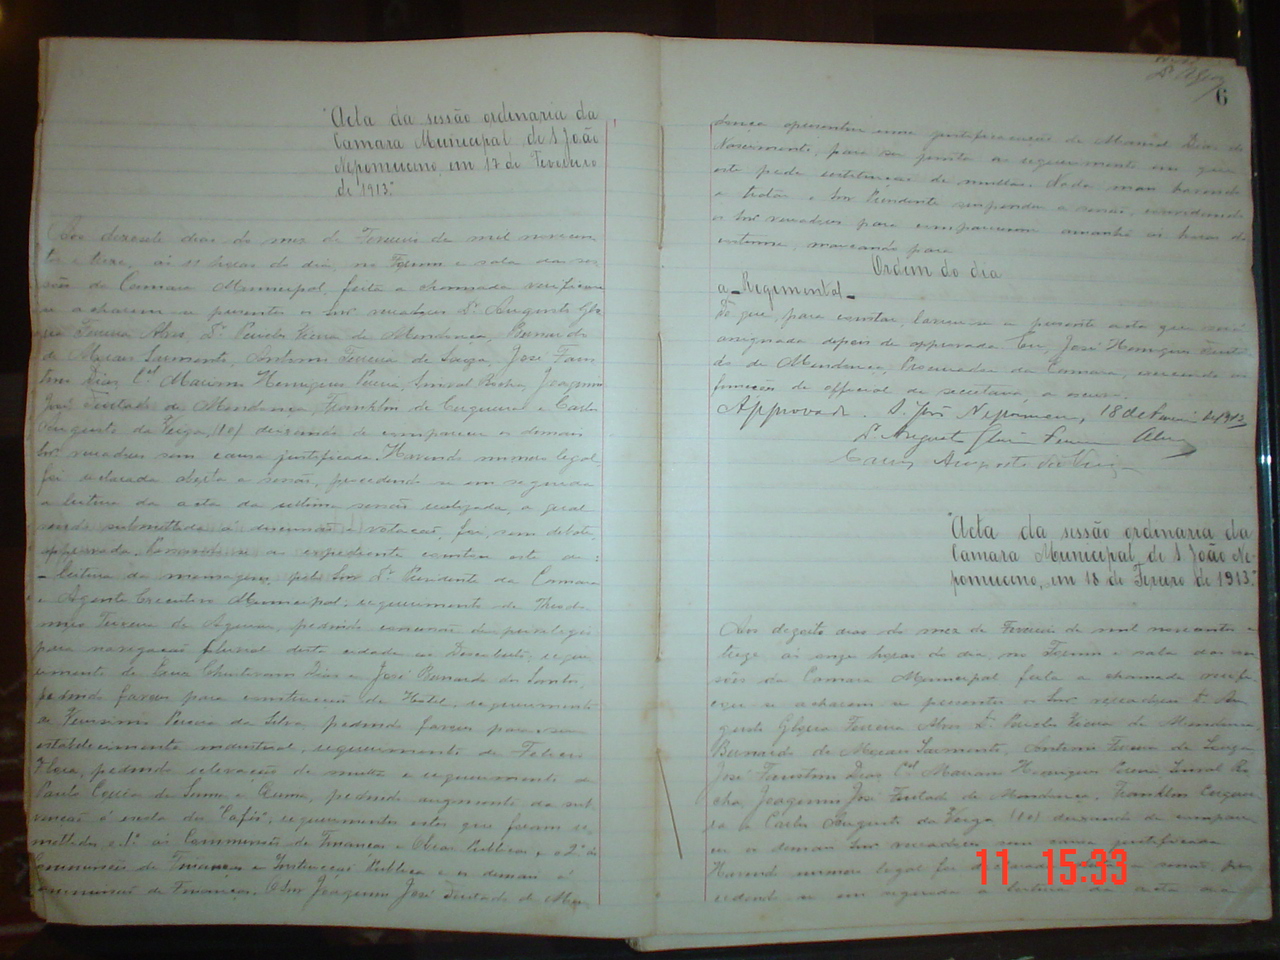 "Acta da sessão ordinaria da
Camara Municipal, de S João
Nepomuceno, em 17 de Fevereiro
de 1913."
Aos dezesete dias do mez de Fevereiro de mil novecen
tos e treze, ás 11 horas do dia, no Forum e sala das ses
sões da Camara Municipal, feita a chamada verificou
se acharem-se presentes os Snrs vereadores Dr Augusto Glo
ria Ferreira Alves, Dr Pericles Vieira de Mendonça, Bernardo
de Moraes Sarmento, Antonio Ferreira de Souza, José Faus
tino Dias, Cel Mariano Henriques Pereira, Sinval Rocha, Joaquim
José Furtado de Mendonça, Franklin de Cerqueira e Carlos
Augusto da Veiga, (10) deixando de comparecer os demais
Snrs vereadores sem causa justificada. Havendo numero legal
foi declarada aberta a sessão, procedendo-se em seguida
a leitura da acta da ultima sessão realizada, a qual
sendo submettida á discussão e votação, foi, sem debate,
approvada. Passando-se ao expediente constou este da:
- leitura da mensagem, pelo Snr Dr Presidente da Camara
e Agente Executivo Municipal; requerimento de Theodo
miro Ferreira de Aguiar, pedindo concessão de privilegio
para navegação fluvial desta cidade ao Descoberto; reque
rimento de Dias e José Bernardo dos Santos,
pedindo favores para construcção de Hotel, requerimento
de Pereira da Silva pedindo favores para seu
estabelecimento industrial, requerimento de Felicio
pedindo relevação de multa e requerimento de
Paulo Corrêa de e pedindo augmento da sub
venção á escola do "Café", requerimentos estes que foram re
mettidos o 1º ás Commissões de Finanças e Obras Publicas, e o 2º ás
Commissões de Finanças e Instrucção Publica e os demais á
Commissão de Finanças. O Snr Joaquim José Furtado de Men
6
donça apresentou uma justificação de Manoel Dias do
Nascimento, para ser junta ao requerimento em que
este pede restituição de multas. Nada mais havendo
a tratar o Snr Presidente suspendeu a sessão, convidando
os Snrs vereadores para comparecerem amanhã ás horas do
costume, marcando para
Ordem do dia
a - Regimental -
Do que, para constar, lavrou-se a presente acta que será
assignada depois de approvada. Eu, José Henriques Furta
do de Mendonça, Procurador da Camara, servindo as
funcções de official de secretaria, a escrevi.
Approvada. S. João Nepomuceno, 18 de Fevereiro de 1913
Dr Augusto Gloria Ferreira Alves
Carlos Augusto da Veiga
"Acta da sessão ordinaria da
Camara Municipal, de S João Ne-
pomuceno, em 18 de Fevreiro de 1913."
Aos dezoito dias do mez de Fevereiro de mil novecentos e
treze, ás onze horas do dia, no Forum e sala das ses
sões da Camara Municipal feita a chamada verifi
cou-se acharem-se presentes os Snrs vereadores Dr Au
gusto Gloria Ferreira Alves Dr Pericles Vieira de Mendonça
Bernardo de Moraes Sarmento, Antonio Ferreira de Souza,
José Faustino Dias, Cel Mariano Henriques Pereira, Sinval Ro
cha, Joaquim José Furtado de Mendonça, Franklin Cerquei
ra e Carlos Augusto da Veiga (10) deixando de compare
cer os demais Snrs vereadores sem causa justificada
Havendo numero legal foi declarada aberta a sessão, pro
cedendo-se em seguida a leitura da acta da
11 15:33